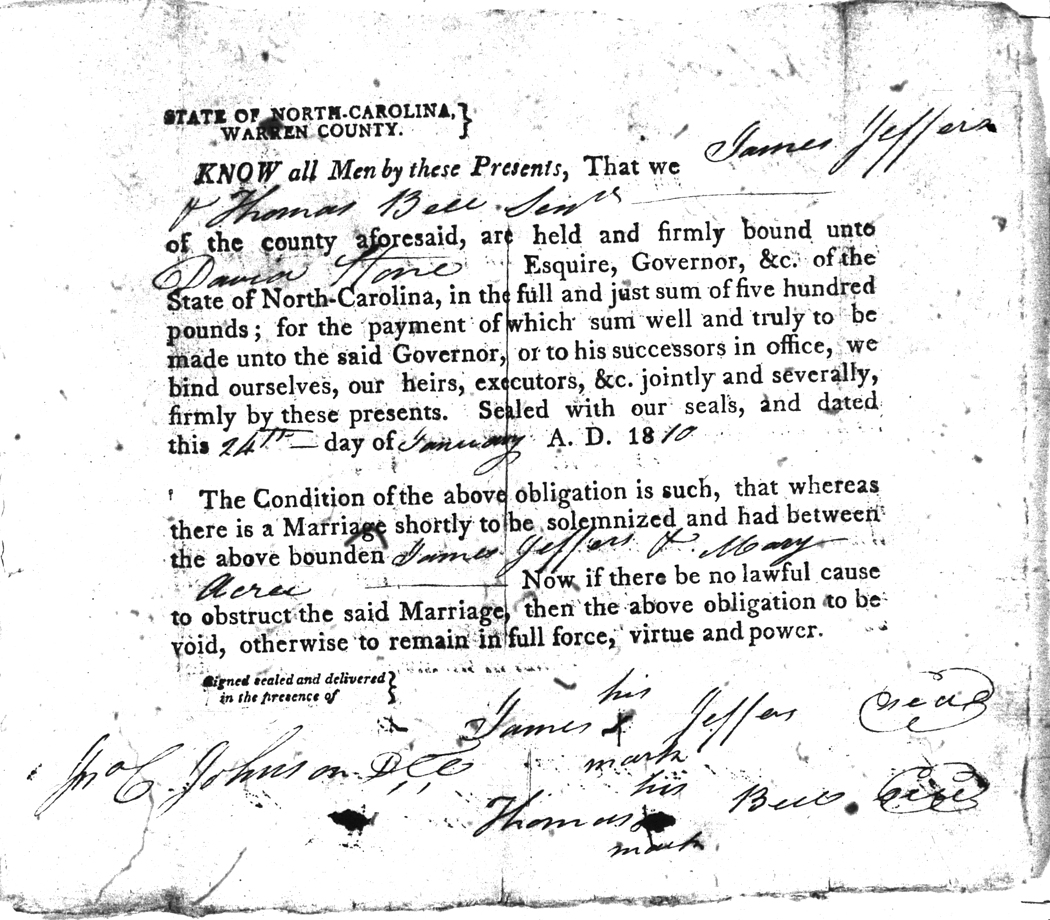 STATE OF NORTH-CAROLINA,}
WARREN COUNTY.
KNOW all Men by these Presents, That we James Jeffers
& Thomas Bell Senr
of the county aforesaid, are held and firmly bound unto
David Stone Esquire, Governor, &c. of the
State of North-Carolina, in the full and just sum of five hundred
pounds; for the payment of which sum well and truly to be
made unto the said Governor, or to his successors in office, we
bind ourselves, our heirs, executors, &c. jointly and severally,
firmly by these presents. Sealed with our seals, and dated
this 24th day of January A. D. 1810
The Condition of the above obligation is such, that whereas
there is a Marriage shortly to be solemnized and had between
the above bounden James Jeffers & Mary
Acree Now if there be no lawful cause
to obstruct the said Marriage, then the above obligation to be
void, otherwise to remain in full force, virtue and power.
Signed sealed and delivered}
in the presence of
his
James x Jeffers seal
mark
Jno C. Johnson D CC
his
Thomas x Bell seal
mark